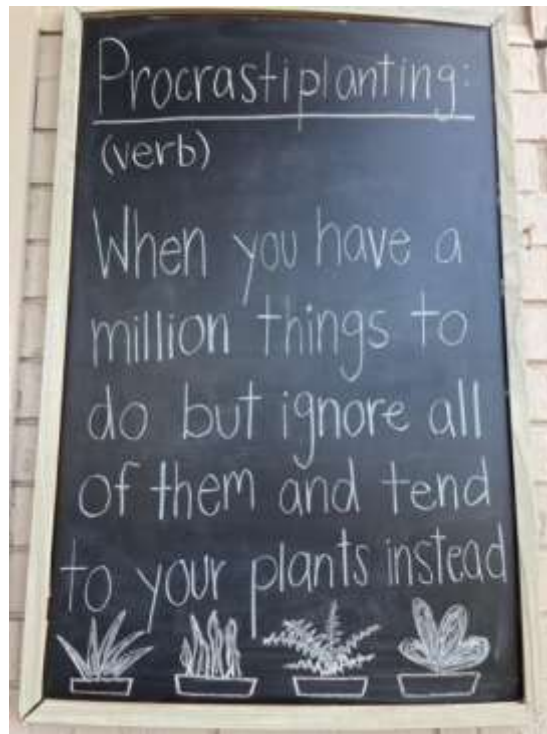 Procrastiplanting:
(verb)
When you have a
million things to
do but ignore all
of them and tend
to your plants instead